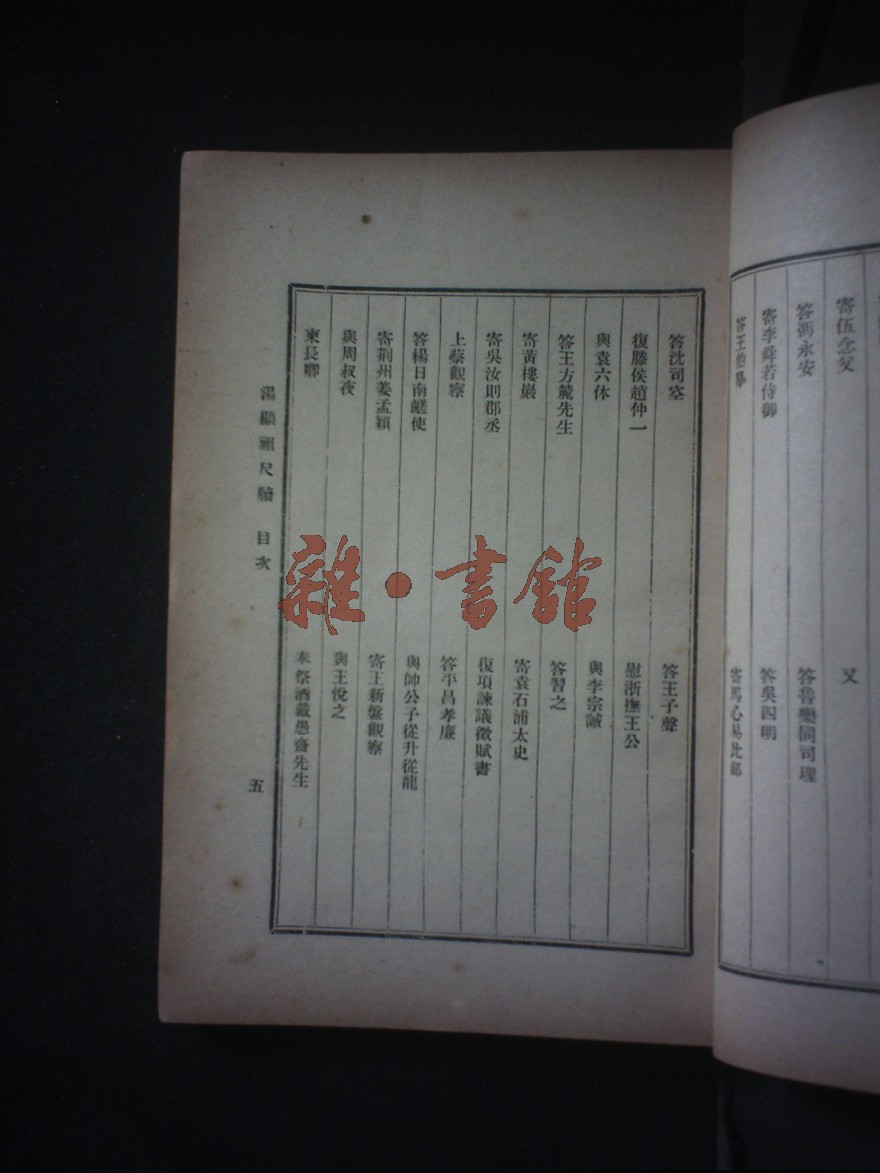 寄伍念父
又
答馮永安
答魯樂同司理
寄李舜若侍御
答吳四明
答王伯皋
寄馬心易比部
答沈司空
答王子聲
復滕侯趙仲一
慰浙撫王公
與袁六休
與李宗誠
答王方麓先生
答習之
寄黃樓巖
寄袁石浦太史
寄吳汝則郡丞
復項諫議徵賦書
上蔡觀察
答平昌孝廉
答楊日南鹺使
與帥公子從升從龍
寄荆州姜孟穎
寄王新盤觀察
與周叔夜
與王悅之
柬長卿
奉祭酒戴愚齋先生
湯顯祖尺牘 目次
五
雜·書館